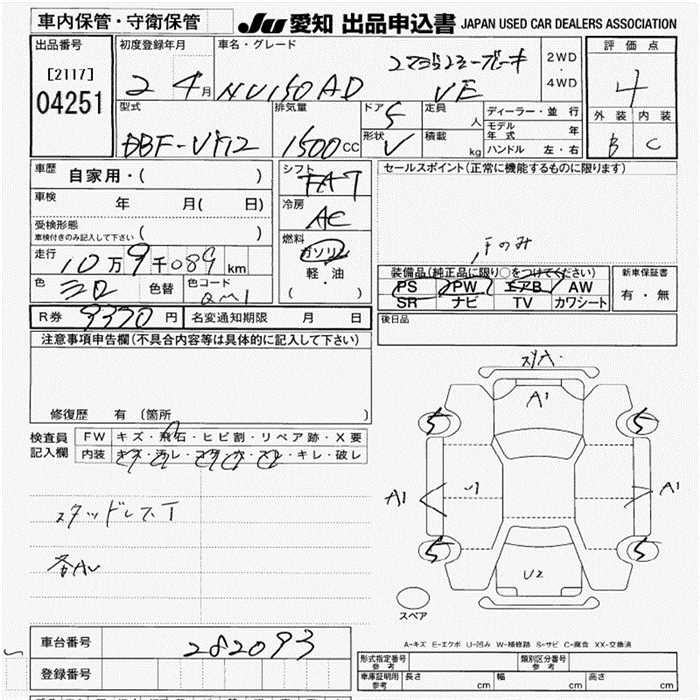 車内保管・守衛保管
JU 愛知 出品申込書 JAPAN USED CAR DEALERS ASSOCIATION
出品番号
[2117]
04251
初度登録年月
2年4月
車名・グレード
NV150AD VE
2WD
4WD
評価点
4
外装 内装
B C
型式
DBF-VY12
排気量
1500cc
ドア
5
形状
V
定員
人
積載
kg
ディーラー・並行
モデル年式 年
ハンドル 左・右
車歴
自家用・( )
車検
年 月( 日)
受検形態
車検付きのみ記入して下さい ( )
走行
10万9千089km
色
色替
色コード
QM1
シフト
FA7
冷房
AC
燃料
ガソリン
軽・油
( )
セールスポイント(正常に機能するものに限ります)
装備品(純正品に限り○をつけてください)
PS PW エアB AW
SR ナビ TV カワシート
新車保証書
有・無
後日品
R券 9370円
名変通知期限 月 日
注意事項申告欄(不具合内容等は具体的に記入して下さい)
修復歴 有(箇所 )
検査員
記入欄
FW キズ・飛石・ヒビ割・リペア跡・X要
内装 キズ・汚レ・コゲ・穴・スレ・キレ・破レ
スタッドレスT
各AU
A1
5
5
A1
U1
A1
5
5
U2
スペア
A-キズ E-エクボ U-凹み W-補修跡 S-サビ C-腐食 XX-交換済
車台番号
282093
登録番号
形式指定番号
参考
類別区分番号
参考
車庫証明用
参考
長さ cm
幅 cm
高さ cm